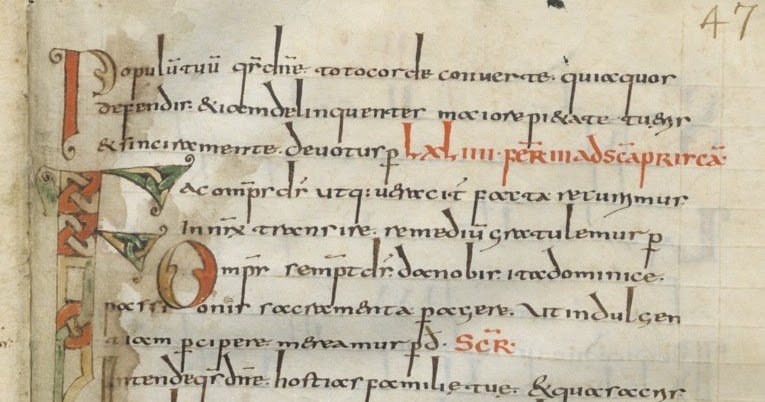 Populū tuū qs̄ dn̄e. toto corde converte. quia quos
defendis. & iam delinquentes maiore pi&ate tueris
& sincira mente. devotus p̄ LXLIIII· FER̄ III AD SC̄A PRISCĀ·
Fac omp̄s ds̄ ut q: veracit̄ facta recurrimus
In nr̄x transire. remediū gratulemur p̄
Omp̄s semp̄t ds̄. da nobis. ita dominice.
passionis sacramenta pagere. Ut indulgen
tiam p̱cipere. mereamur p̱d̄. SCR̄·
Intende qs̄ dn̄e. hostias familie tue. & qua sacris
47